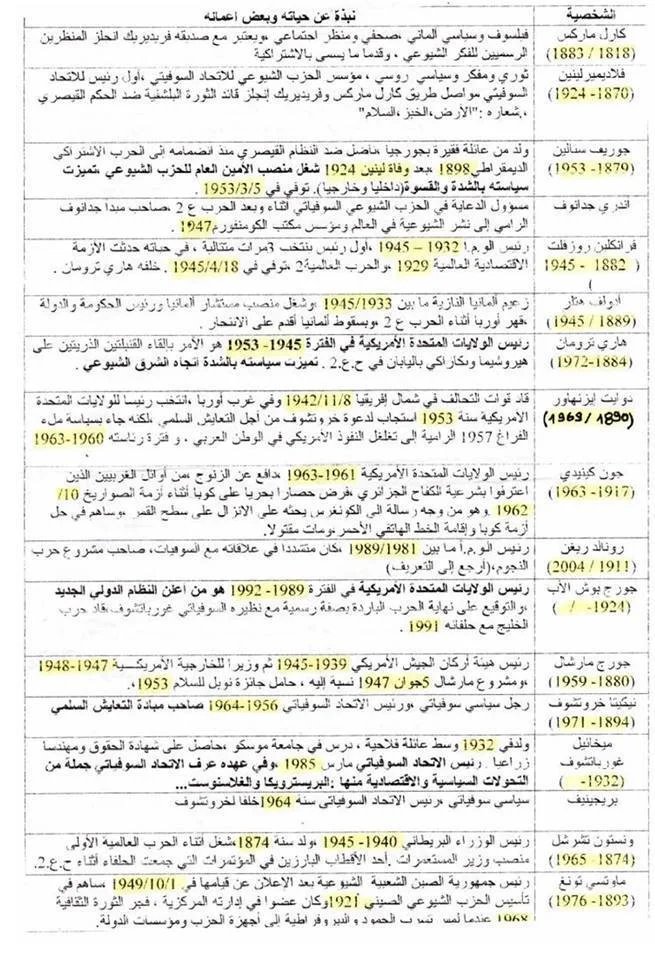 الشخصية
نبذة عن حياته وبعض أعماله
كارل ماركس
(1818 / 1883)
فيلسوف وسياسي ألماني ، صحفي ومنظر اجتماعي ،ويعتبر مع صديقه فريديريك انجلز المنظرين
الرسميين للفكر الشيوعي ، وقدما ما يسمى بالاشتراكية
فلاديميرلينين
(1870- 1924)
ثوري ومفكر وسياسي روسي ، مؤسس الحزب الشيوعي للاتحاد السوفيتي ،أول رئيس للاتحاد
السوفيتي ،مواصل طريق كارل ماركس وفريديريك إنجلز قائد الثورة البلشفية ضد الحكم القيصري
،شعاره :"الأرض،الخبز،السلام"
جوزيف ستالين
(1879- 1953)
ولد من عائلة فقيرة بجورجيا، ناضل ضد النظام القيصري منذ انضمامه إلى الحزب الاشتراكي
الديمقراطي1898 ،بعد وفاة لينين 1924 شغل منصب الأمين العام للحزب الشيوعي ،تميزت
سياسته بالشدة والقسوة(داخليا وخارجيا). توفي في 1953/3/5
اندري جدانوف
مسؤول الدعاية في الحزب الشيوعي السوفياتي أثناء وبعد الحرب ع 2 ،صاحب مبدأ جدانوف
الرامي إلى نشر الشيوعية في العالم ومؤسس مكتب الكومنفورم1947
فرانكلين روزفلت
( 1882 - 1945
)
رئيس الو.م.أ 1932 – 1945 ،أول رئيس ينتخب 3مرات متتالية ، في حياته حدثت الأزمة
الاقتصادية العالمية 1929 ،والحرب العالمية2 ،توفي في 1945/4/18 .خلفه هاري ترومان .
أدولف هتلر
(1889/ 1945)
زعيم ألمانيا النازية ما بين 1945/1933 ،وشغل منصب مستشار ألمانيا ورئيس الحكومة والدولة
،قهر أوربا أثناء الحرب ع 2 ،وبسقوط ألمانيا أقدم على الانتحار .
هاري ترومان
(1884-1972)
رئيس الولايات المتحدة الأمريكية في الفترة 1945- 1953 هو الآمر بإلقاء القنبلتين الذريتين على
هيروشيما ونكازاكي باليابان في ح.ع.2 . تميزت سياسته بالشدة اتجاه الشرق الشيوعي .
دوايت إيزنهاور
(1890 / 1969)
قاد قوات التحالف في شمال إفريقيا 1942/11/8 وفي غرب أوربا ،انتخب رئيسا للولايات المتحدة
الأمريكية سنة 1953 استجاب لدعوة خروتشوف من أجل التعايش السلمي ،لكنه جاء بسياسة ملء
الفراغ 1957 الرامية إلى تغلغل النفوذ الأمريكي في الوطن العربي ، و فترة رئاسته 1960-1963
جون كينيدي
(1917- 1963)
رئيس الولايات المتحدة الأمريكية 1961-1963 ،دافع عن الزنوج ،من أوائل الغربيين الذين
اعترفوا بشرعية الكفاح الجزائري ،فرض حصارا بحريا على كوبا أثناء أزمة الصواريخ 10/
1962 وهو من وجه رسالة الى الكونغرس يحثه على الانزال على سطح القمر ،وساهم في حل
أزمة كوبا وإقامة الخط الهاتفي الأحمر،ومات مقتولا.
رونالد ريغن
(1911 / 2004)
رئيس الو.م.أ ما بين 1989/1981 ،كان متشددا في علاقاته مع السوفيات، صاحب مشروع حرب
النجوم،(أرجع إلى التعريف)
جورج بوش الأب
(1924- / )
رئيس الولايات المتحدة الأمريكية في الفترة 1989- 1992 هو من أعلن النظام الدولي الجديد
،والتوقيع على نهاية الحرب الباردة بصفة رسمية مع نظيره السوفياتي غورباتشوف،قاد حرب
الخليج مع حلفائه 1991 .
جورج مارشال
(1880- 1959)
رئيس هيئة أركان الجيش الأمريكي 1939-1945 ثم وزيرا للخارجية الأمريكية 1947-1948
،ومشروع مارشال 5جوان 1947 نسبة إليه ، حامل جائزة نوبل للسلام 1953.،
نيكيتا خروتشوف
(1894- 1971)
رجل سياسي سوفياتي ،ورئيس الاتحاد السوفياتي 1956-1964 صاحب مبادة التعايش السلمي
ميخائيل
غورباتشوف
(1932- )
ولدفي 1932 وسط عائلة فلاحية ، درس في جامعة موسكو ،حاصل على شهادة الحقوق ومهندسا
زراعيا . رئيس الاتحاد السوفياتي مارس 1985 ،وفي عهده عرف الاتحاد السوفياتي جملة من
التحولات السياسية والاقتصادية منها :البريسترويكا والغلاسنوست...
بريجينيف
سياسي سوفياتي ،رئيس الاتحاد السوفياتي سنة 1964خلفا لخروتشوف
ونستون تشرشل
(1874- 1965)
رئيس الوزراء البريطاني 1940- 1945 ،ولد سنة 1874،شغل أثناء الحرب العالمية الأولى
منصب وزير المستعمرات .أحد الأقطاب البارزين في المؤتمرات التي جمعت الحلفاء أثناء ح.ع.2.
ماوتسي تونغ
(1893- 1976)
رئيس جمهورية الصين الشعبية الشيوعية بعد الإعلان عن قيامها في 1949/10/1 ،ساهم في
تأسيس الحزب الشيوعي الصيني 1921وكان عضوا في إدارته المركزية ، فجر الثورة الثقافية
1968 عندما لمس تسرب الجمود والبيروقراطية إلى أجهزة الحزب ومؤسسات الدولة.